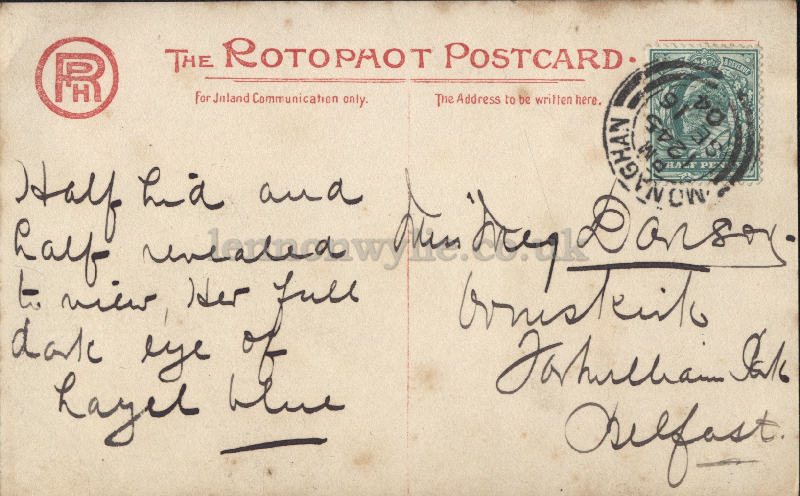 RPPH
THE ROTOPHOT POSTCARD.
For Inland Communication only.
The Address to be written here.
HALF PENNY
MONAGHAN
12 45 PM
SE 16
04
Half hid and
half revealed
to view, Her full
dark eye of
hazel blue
Miss Meg Davison.
Ormskirk
Fortwilliam Park
Belfast.
lennonwylie.co.uk